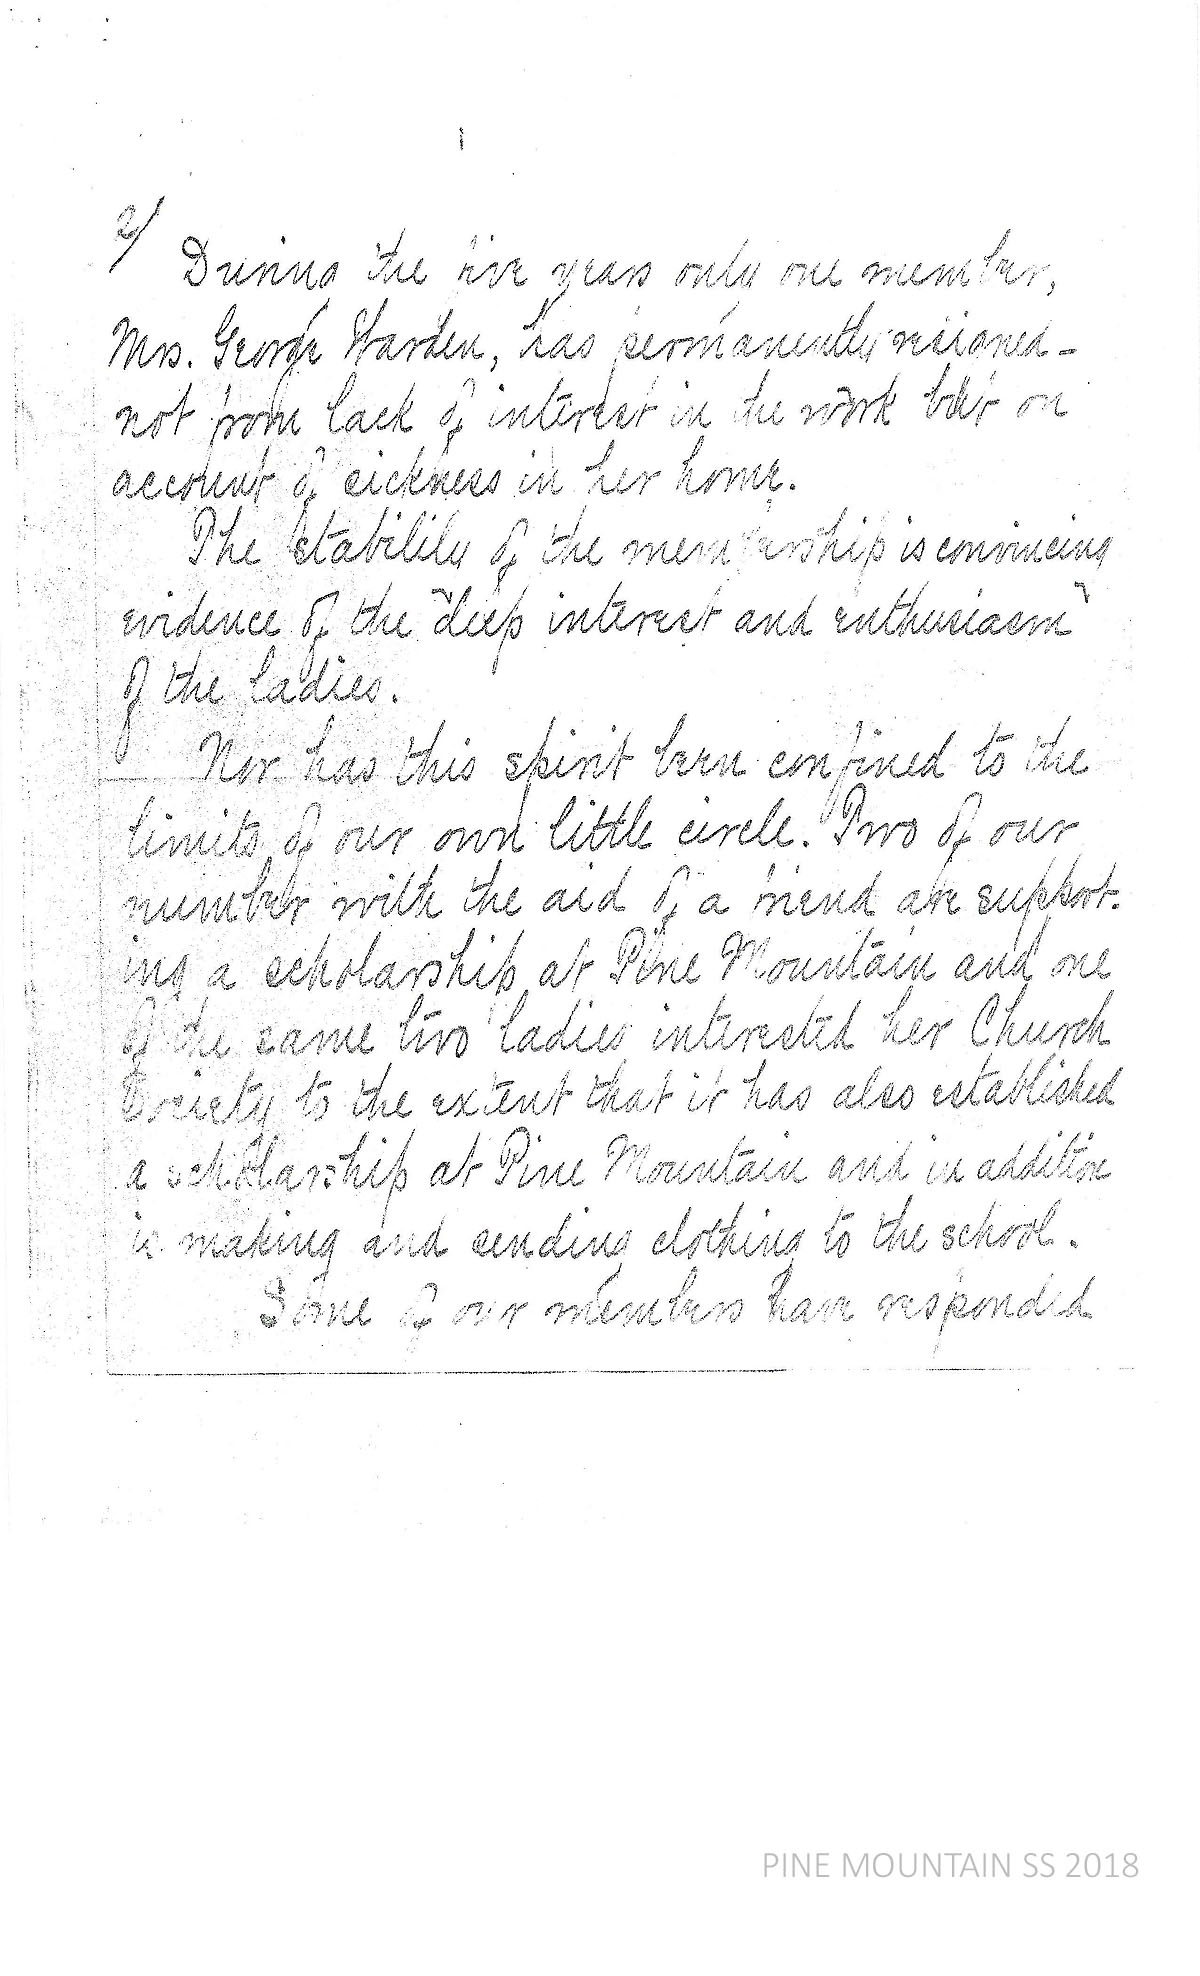 2/
During the five years only one member,
Mrs. George Warden, has permanently resigned -
not from lack of interest in the work but on
account of sickness in her home.
The stability of the membership is convincing
evidence of the "deep interest and enthusiasm"
of the ladies.
Nor has this spirit been confined to the
limits of our own little circle. Two of our
number with the aid of a friend are support-
ing a scholarship at Pine Mountain and one
of the same two ladies interested her Church
Society to the extent that it has also established
a scholarship at Pine Mountain and in addition
is making and sending clothing to the school.
Some of our members have responded
PINE MOUNTAIN SS 2018